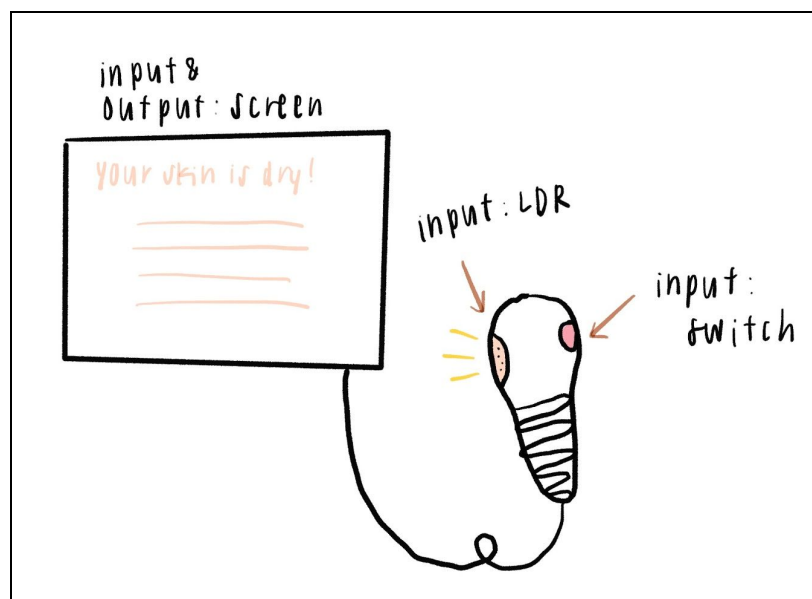 input &
output: screen
your skin is dry!
input: LDR
input:
switch